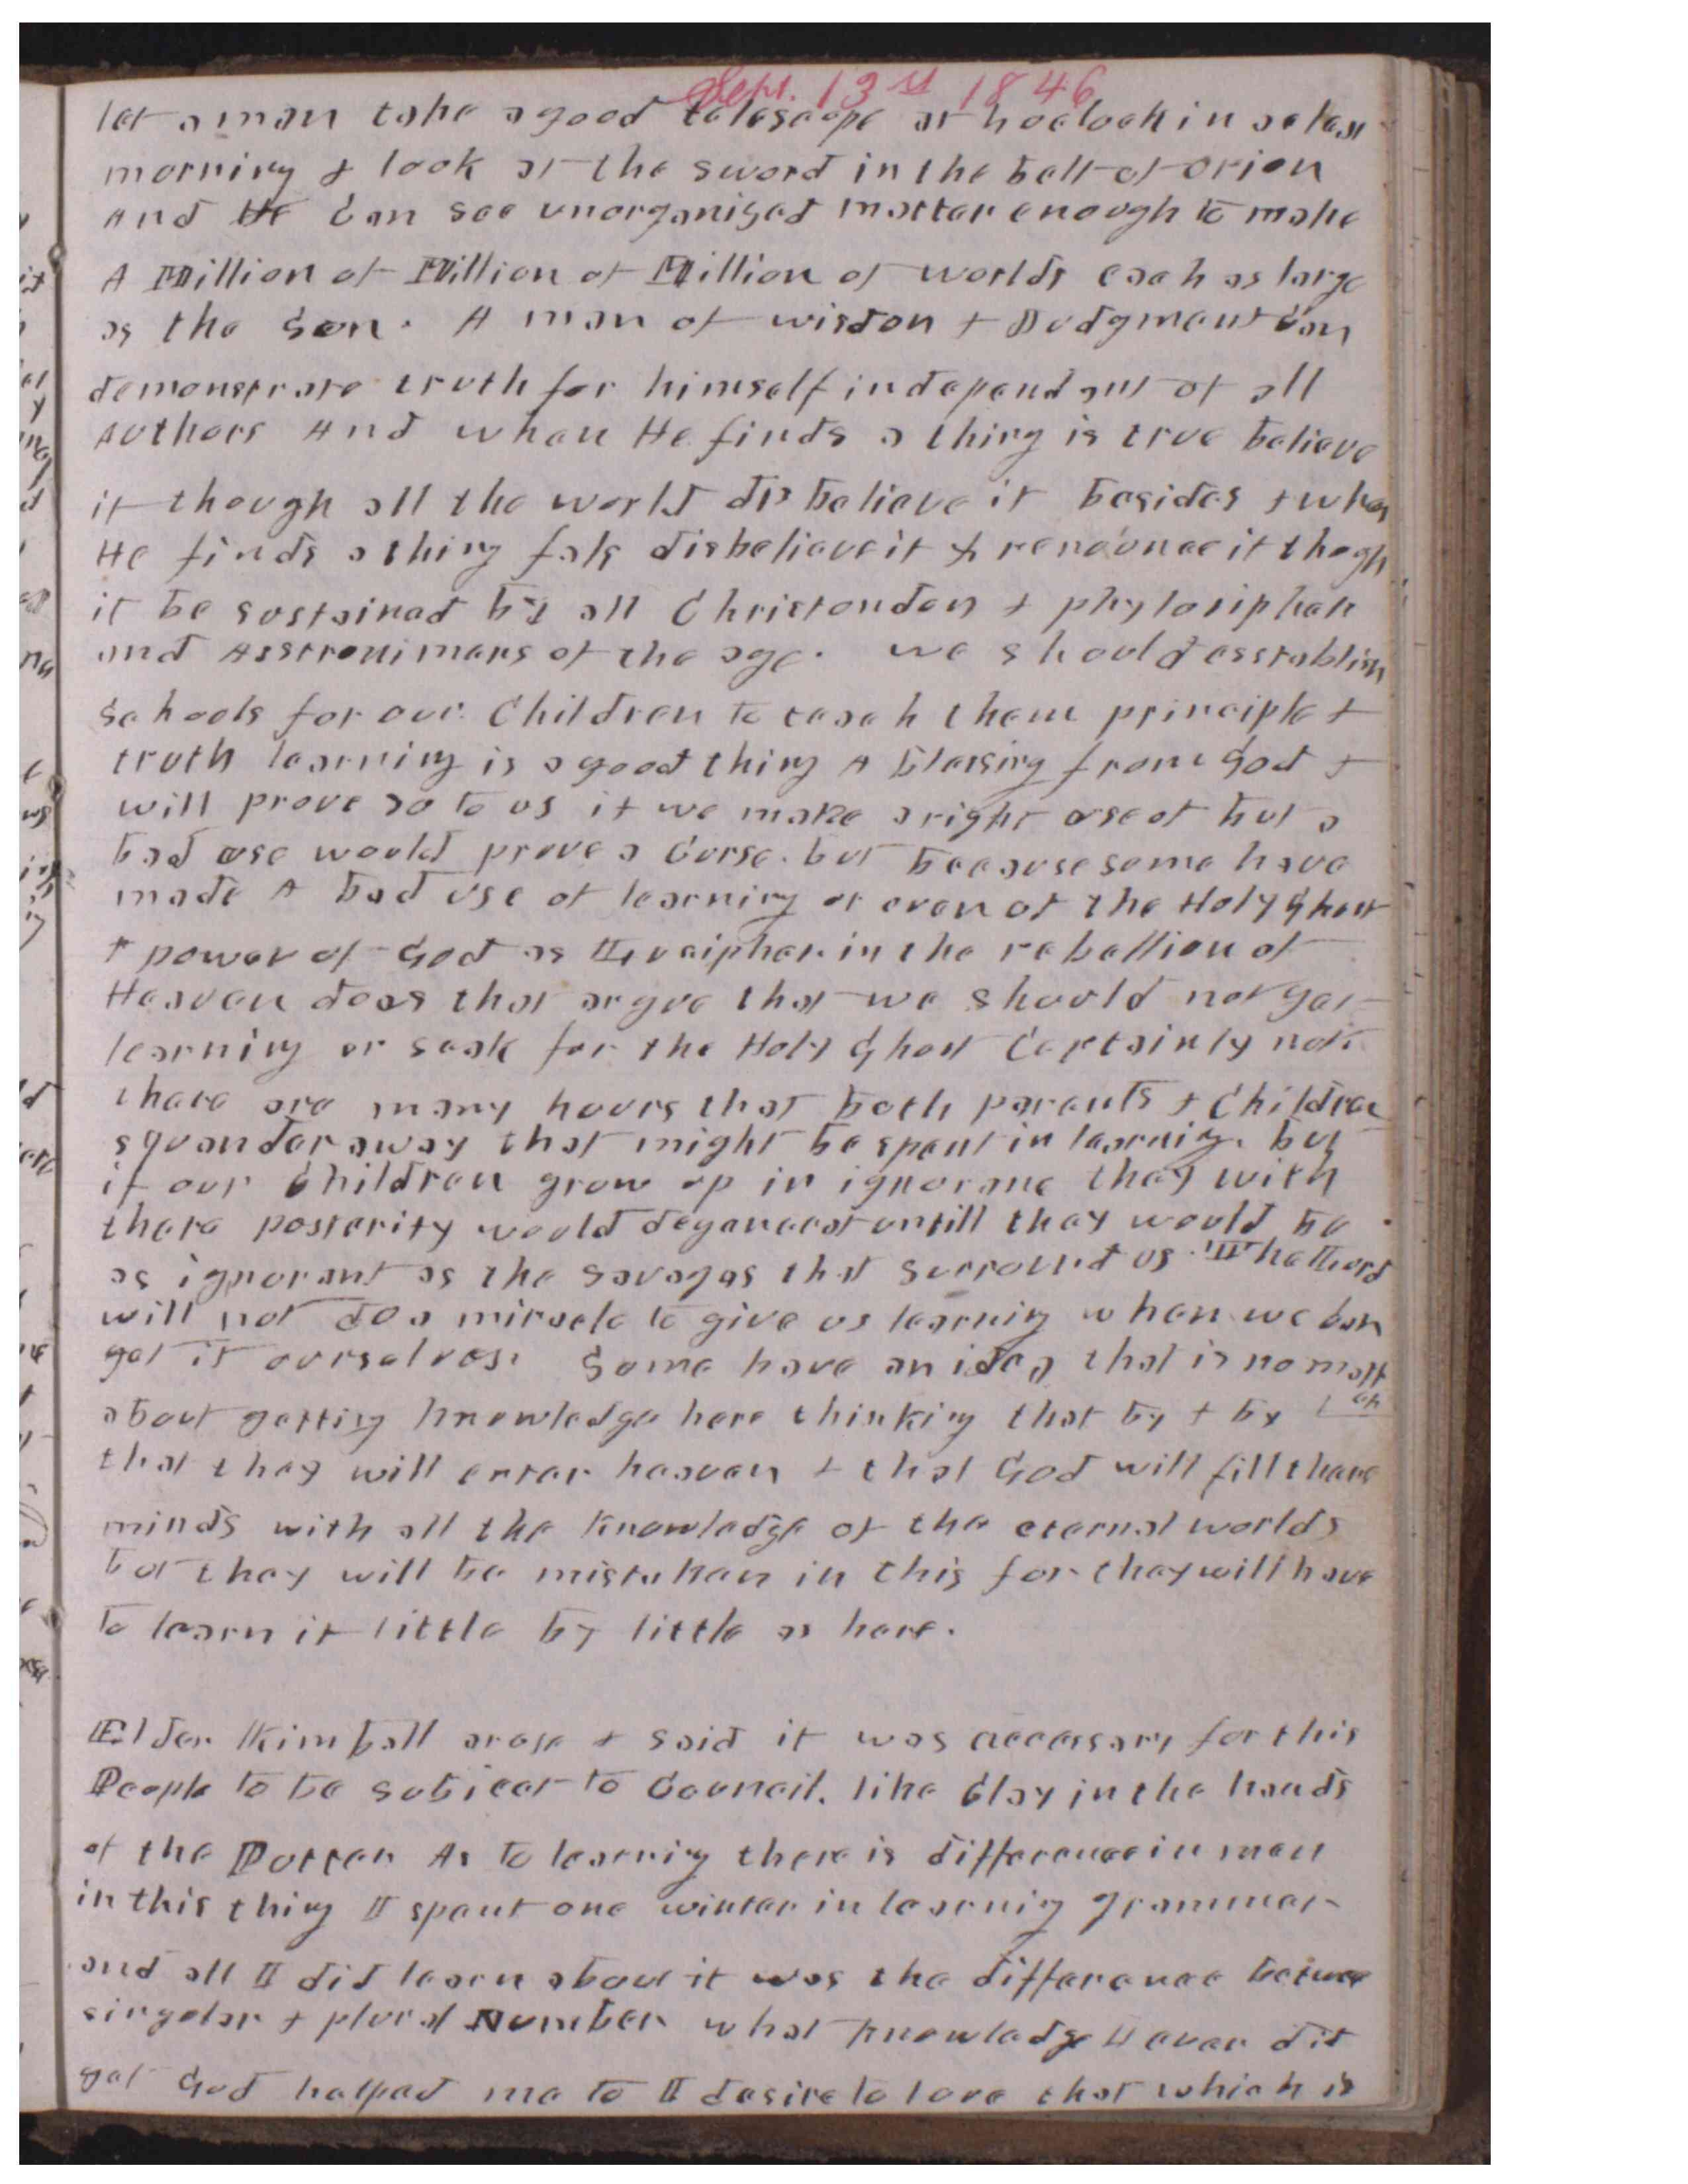 Sept. 13st 1846
let a man take a good telescope at 4 oclock in a clear
morning & look at the sword in the belt of orion
And He Can see unorganised matter enough to make
A Million of Million of Million of worlds each as large
as the Son. A man of wisdon & Judgment Can
demonstrate truth for himself independant of all
Authors And when He finds a thing is true believe
it though all the world disbelieve it besides & when
He finds a thing fals disbelieve it & renounce it thogh
it be sustained by all Christondon & phylosipheh
and Asstronimars of the age. we should esstablish
schools for our Children to teach them principle &
truth learning is a good thing A blessing from God &
will prove so to us if we make a right use of but a
bad use would prove a Curse. but because some have
made A bad use of learning or even of the Holy Ghost
& power of God as Lucipher in the rebellion of
Heaven does that argue that we should not get
learning or seek for the Holy Ghost Certainly not.
there are many hours that both parents & Children
squander away that might be spent in learning. but
if our Children grow up in ignorane they with
there posterity would degenerat untill they would be
as ignorant as the savages that surround us. The Lord
will not do a miracle to give us learning when we can
get it ourselves. Some have an idea that is no matt
er
about getting knowledge here thinking that by & by
that they will enter heaven & that God will fill there
minds with all the knowledge of the eternal worlds
but they will be mistaken in this for they will have
to learn it little by little as here.
Elder Kimball arose & said it was necessary for this
People to be subject to Council. like Clay in the hands
of the Potter As to learning there is difference in men
in this thing I spent one winter in learning grammar
and all I did learn about it was the difference betwee
singular & plural Number what knowledge I ever did
get God helped me to I desire to love that which is